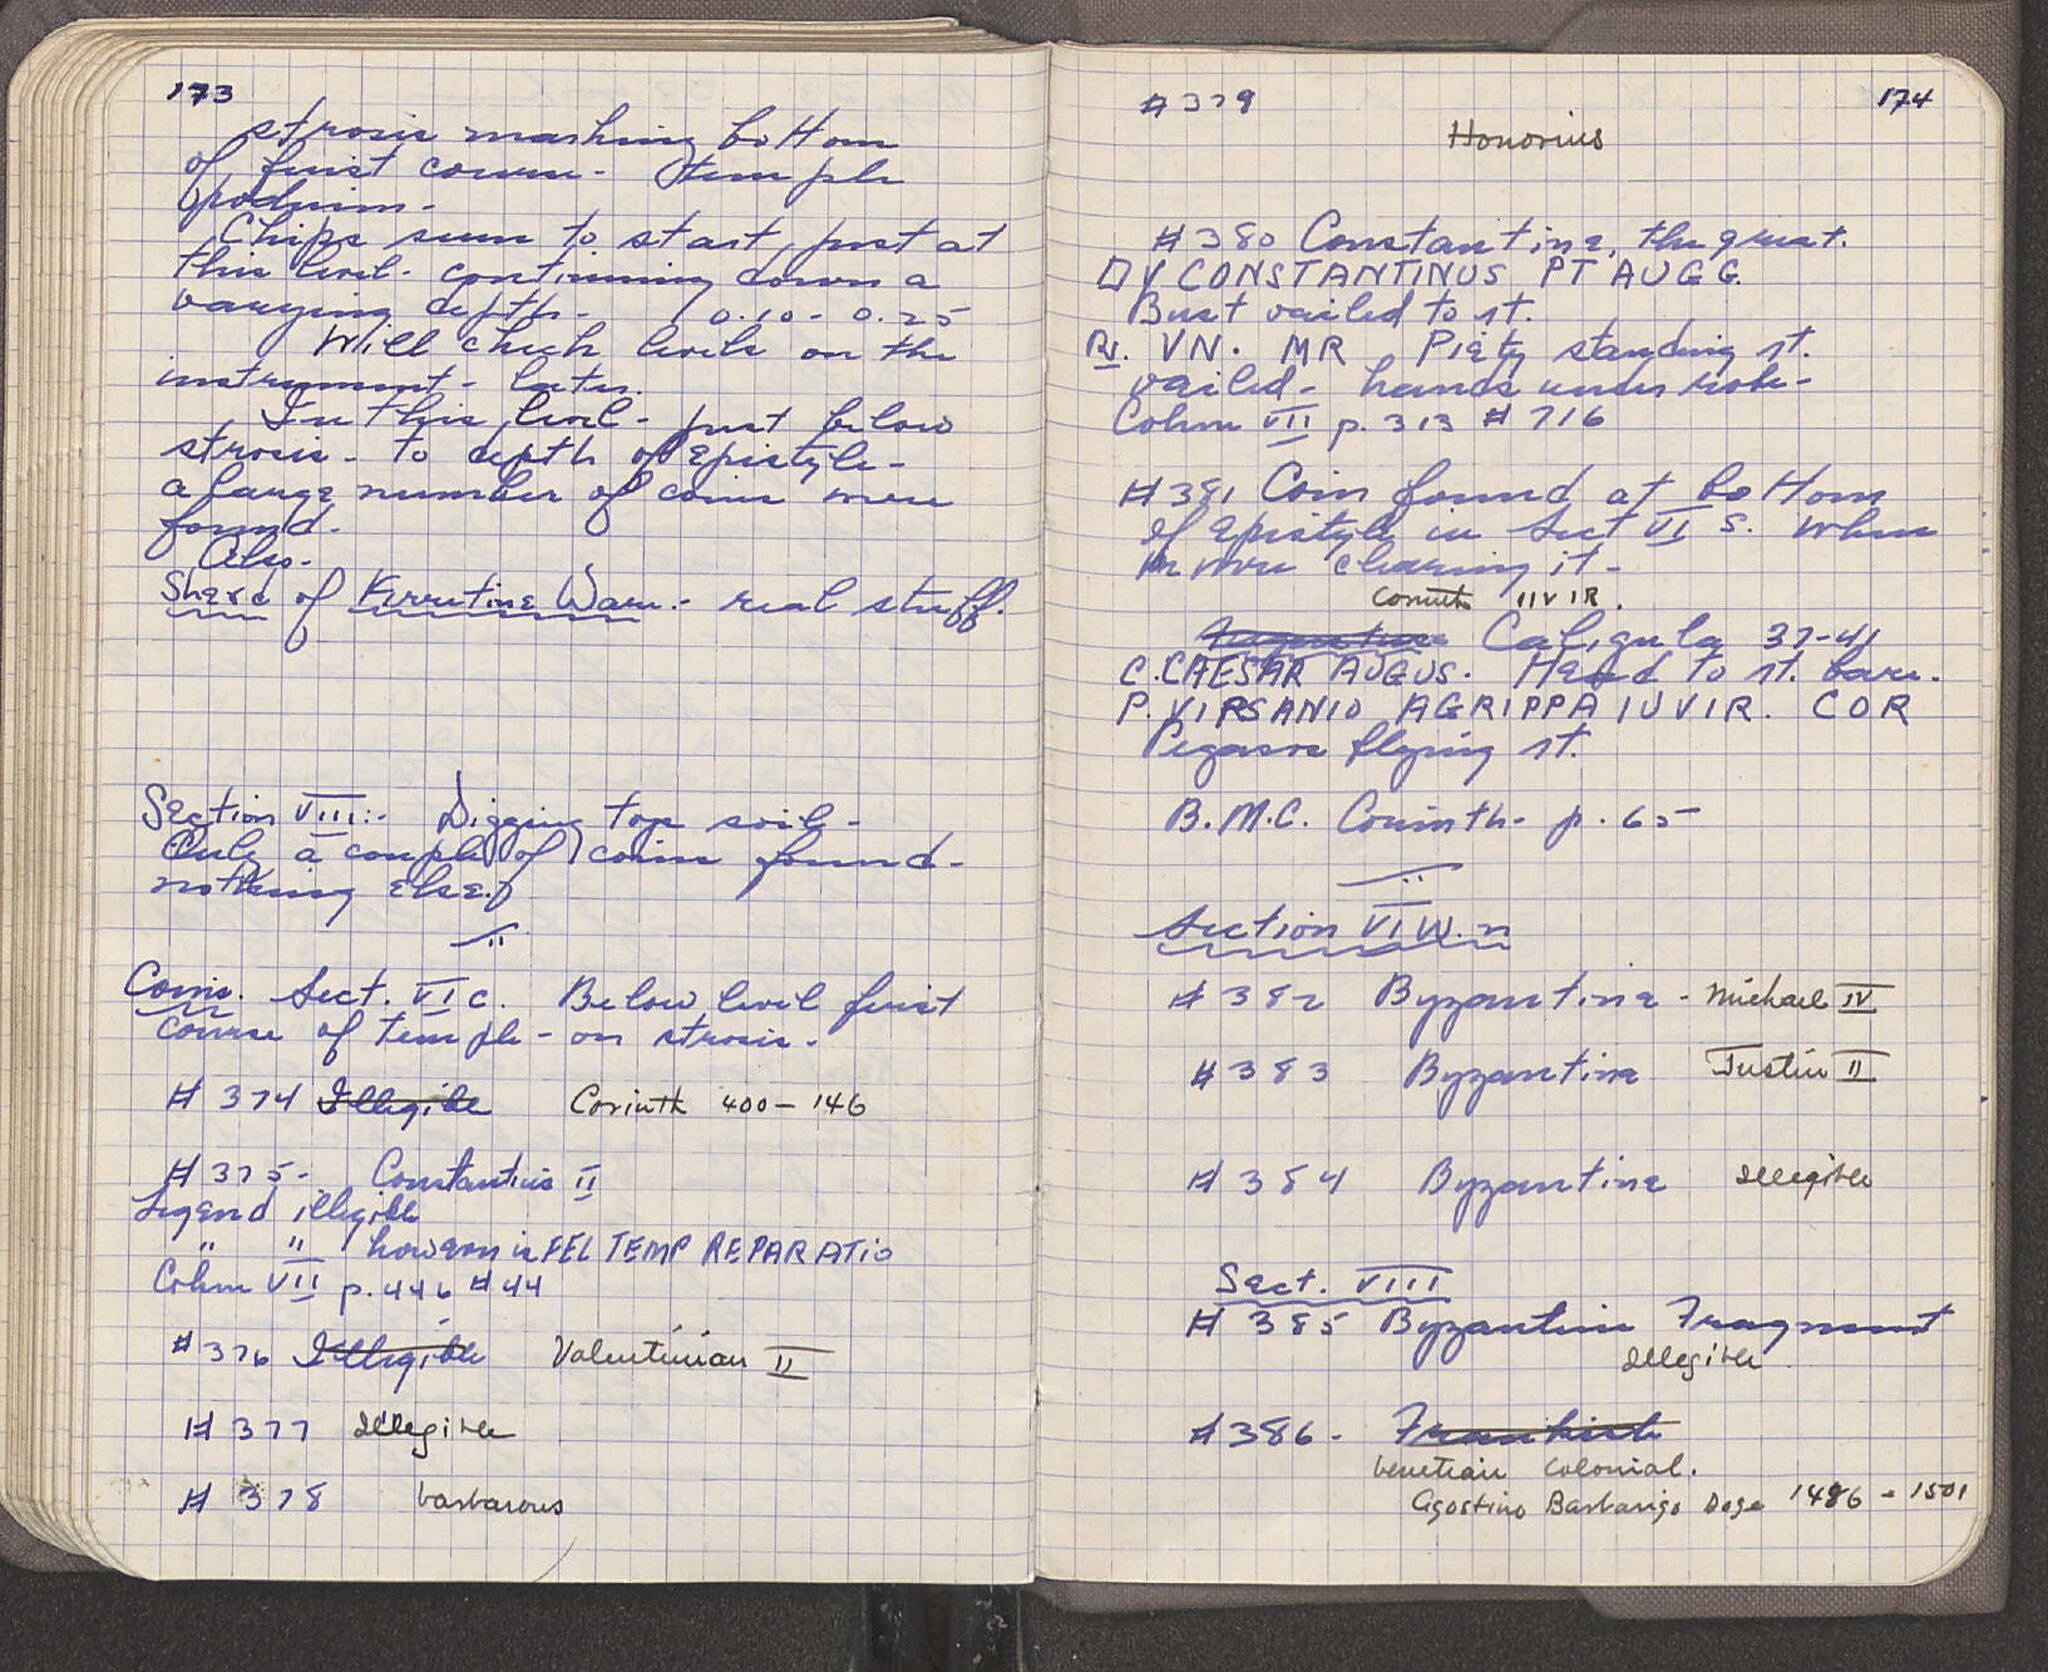 173
strosis marking bottom
of first course - temple
podium -
Chips seem to start, just at
this level - continuing down a
varying depth - 0.10 - 0.25
Will check levels on the
instrument - later.
In this level - just below
strosis - to depth of Epistyle -
a large number of coins were
found -
Also -
Sherd of Arretine Ware - real stuff.
Section VIII:- Digging top soil -
Only a couple of coins found -
nothing else.
Coins. Sect. VI c. Below level first
course of temple - on strosis -
# 374 Illegible Corinth 400 - 146
# 375 - Constantius II
Legend illegible
" " however is FEL TEMP REPARATIO
Cohen VII p. 446 # 44
# 376 Illegible Valentinian II
# 377 Illegible
# 378 barbarous
174
# 379
Honorius
# 380 Constantine, the great.
DV CONSTANTINUS PT AUGG.
Bust vailed to rt.
Rv. VN. MR Piety standing rt.
vailed - hands under robe -
Cohen VII p. 313 # 716
# 381 Coin found at bottom
of Epistyle in Sect VI S. when
we were clearing it -
Corinth IIVIR.
Augustus Caligula 37-41
C. CAESAR AUGUS. Head to rt. bare.
P. VIPSANIO AGRIPPA IUVIR. COR
Pegasus flying rt.
B.M.C. Corinth - p. 65
Section VI W. n
# 382 Byzantine - Michael IV
# 383 Byzantine Justin II
# 384 Byzantine Illegible
Sect. VIII
# 385 Byzantine Fragment
Illegible
# 386 - Frankish
Venetian Colonial.
Agostino Barbarigo Doge 1486 - 1501